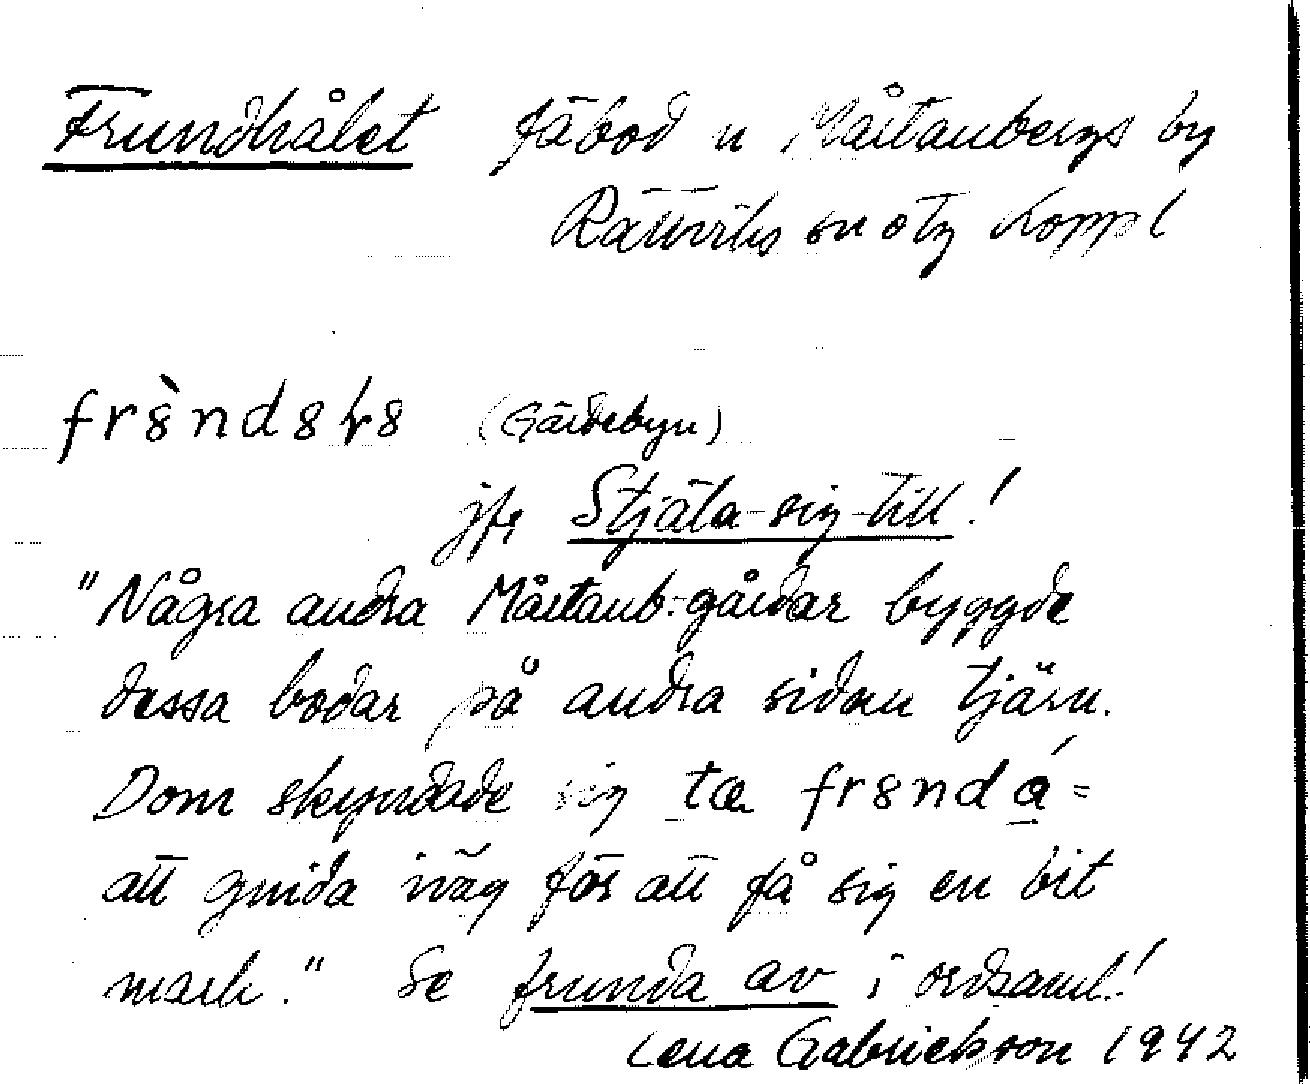 Frundhålet fäbod u Mårtanbergs by
Rättviks sn otg Koppl
frȣ̀ndȣɫȣ (Gärdebyn)
jfr Stjäla-sig-till!
"Några andra Mårtanb:gårdar byggde
dessa bodar på andra sidan tjärn.
Dom skyndade sig ta frȣndá =
att gnida iväg för att få sig en bit
mark." Se frunda av i ordsaml.!
Lena Gabrielsson 1942